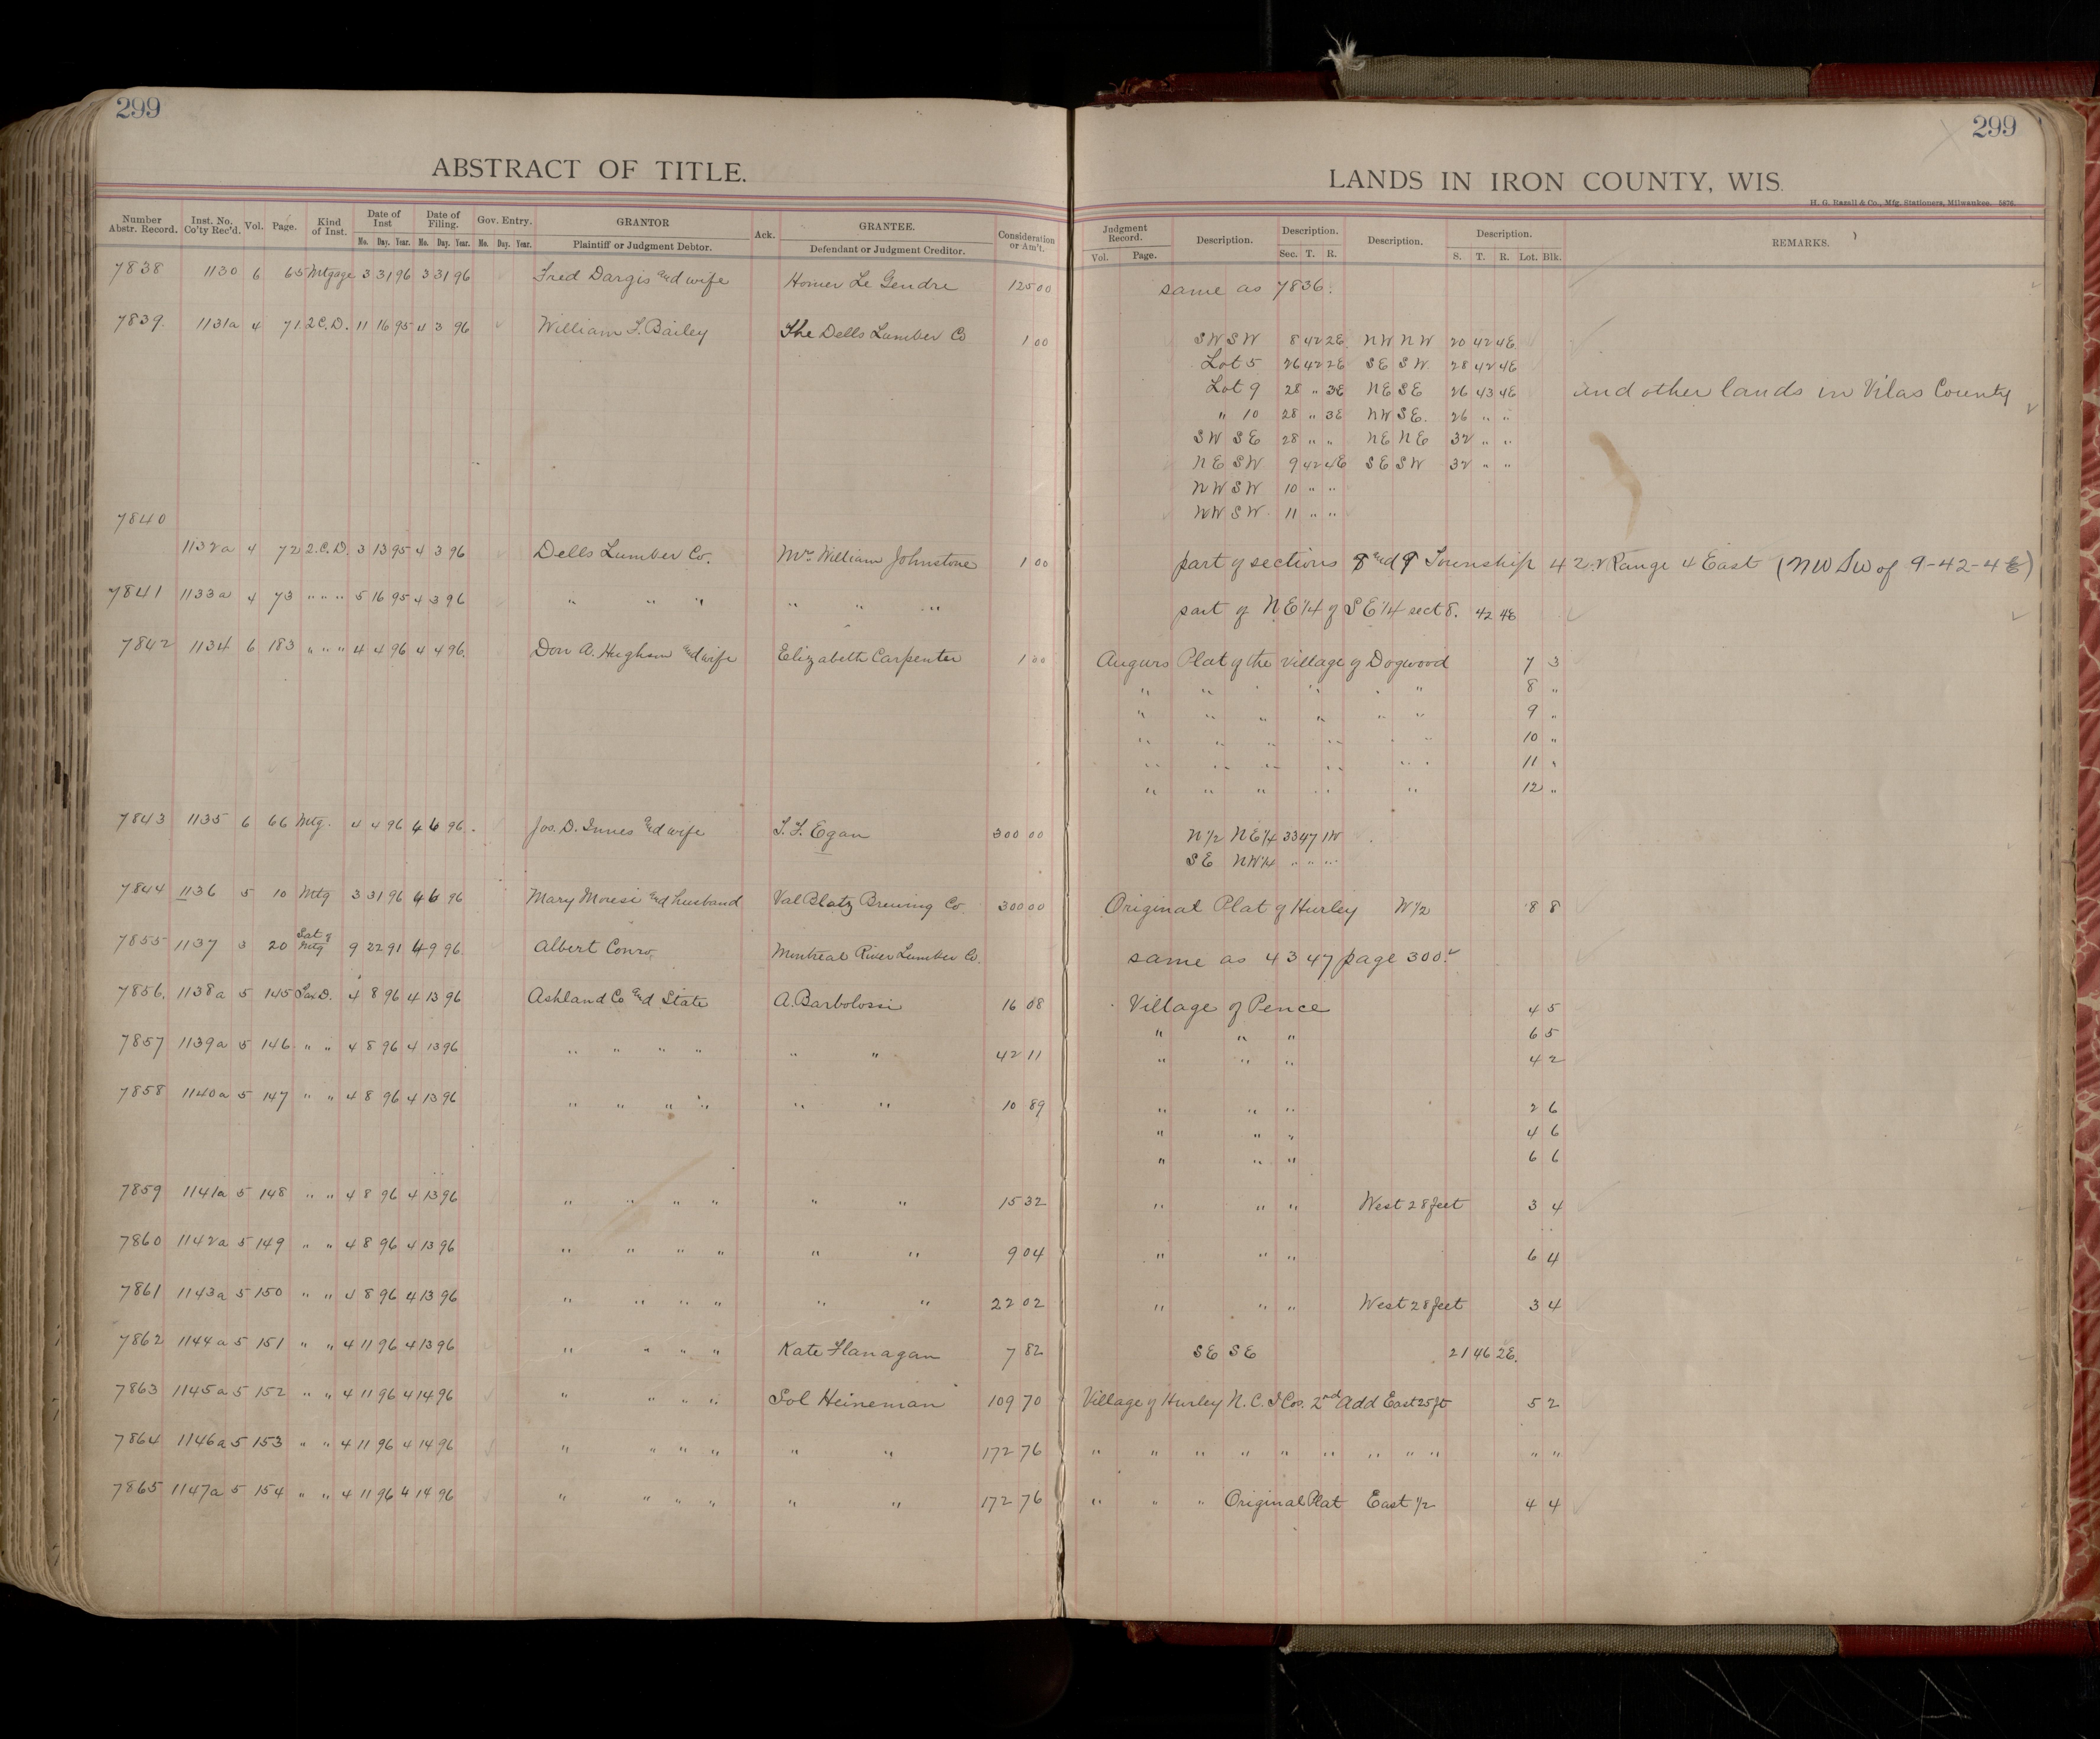 299
299
ABSTRACT OF TITLE.
LANDS IN IRON COUNTY, WIS.
H. G. Razall & Co., Mfg. Stationers, Milwaukee. 5676.
Number Abstr. Record. Inst. No. Co'ty Rec'd. Vol. Page. Kind of Inst. Date of Inst Mo. Day. Year. Date of Filing. Mo. Day. Year. Gov. Entry. Mo. Day. Year. GRANTOR Plaintiff or Judgment Debtor. Ack. GRANTEE. Defendant or Judgment Creditor. Consideration or Am't. Judgment Record. Vol. Page. Description. Description. Sec. T. R. Description. Description. S. T. R. Lot. Blk. REMARKS.
7838 1130 6 65 Mtgage 3 31 96 3 31 96 Fred Dargis and wife Homer Le Gendre 125 00 same as 7836.
7839. 1131a 4 71 2C.D. 11 16 95 4 3 96 William T. Bailey The Dells Lumber Co 1 00 SW SW 8 42 2E NW NW 20 42 4E
Lot 5 26 42 2E SE SW 28 42 4E
Lot 9 28 " 3E NE SE 26 43 4E and other lands in Vilas County
" 10 28 " 3E NW SE. 26 " "
SW SE 28 " " NE NE 32 " "
NE SW 9 42 4E SE SW 32 " "
NW SW 10 " "
NW SW. 11 " "
7840
1132a 4 72 2.C.D. 3 13 95 4 3 96 Dells Lumber Co. Mrs William Johnstone 1 00 part of sections 8 and 9 Township 42. Range 4 East (NW SW of 9-42-4E)
7841 1133a 4 73 " " " 5 16 95 4 3 96 " " " " " " part of NE 1/4 of SE 1/4 sect 8. 42 4E
7842 1134 6 183 " " " 4 4 96 4 4 96. Don A. and wife Elizabeth Carpenter 1 00 Augurs Plat of the village of Dogwood 7 3
" " " " " " 8 "
" " " " " " 9 "
" " " " " " 10 "
" " " " " " 11 "
" " " " " 12 "
7843 1135 6 66 Mtg. 4 4 96 4 6 96. Jos. D. Innes and wife T. F. Egan 300 00 N 1/2 NE 1/4 33 47 1W
SE NW 1/4 " " "
7844 1136 5 10 Mtg 3 31 96 4 6 96 Mary Moresi and husband Val Blatz Brewing Co 300 00 Original Plat of Hurley W 1/2 8 8
7855 1137 3 20 Sat of Mtg 9 22 91 4 9 96. Albert Conro, Montreal River Lumber Co. same as 4347 page 300.
7856. 1138a 5 145 Tax D. 4 8 96 4 13 96 Ashland Co and State A. Barbolossi 16 08 Village of Pence 4 5
" " " 6 5
7857 1139a 5 146 " " 4 8 96 4 13 96 " " " " " " 42 11 " " " 4 2
7858 1140a 5 147 " " 4 8 96 4 13 96 " " " " " " 10 89 " " " 2 6
" " " 4 6
" " " 6 6
7859 1141a 5 148 " " 4 8 96 4 13 96 " " " " " " 15 32 " " " West 28 feet 3 4
7860 1142a 5 149 " " 4 8 96 4 13 96 " " " " " " 9 04 " " " 6 4
7861 1143a 5 150 " " 4 8 96 4 13 96 " " " " " " 22 02 " " " West 28 feet 3 4
7862 1144a 5 151 " " 4 11 96 4 13 96 " " " " Kate Flanagan 7 82 SE SE 21 46 2E.
7863 1145a 5 152 " " 4 11 96 4 14 96 " " " " Sol Heineman 109 70 Village of Hurley N. C. I Cos. 2nd Add East 25 ft 5 2
7864 1146a 5 153 " " 4 11 96 4 14 96 " " " " " " 172 76 " " " " " " " " " " "
7865 1147a 5 154 " " 4 11 96 4 14 96 " " " " " " 172 76 " " " Original Plat East 1/2 4 4